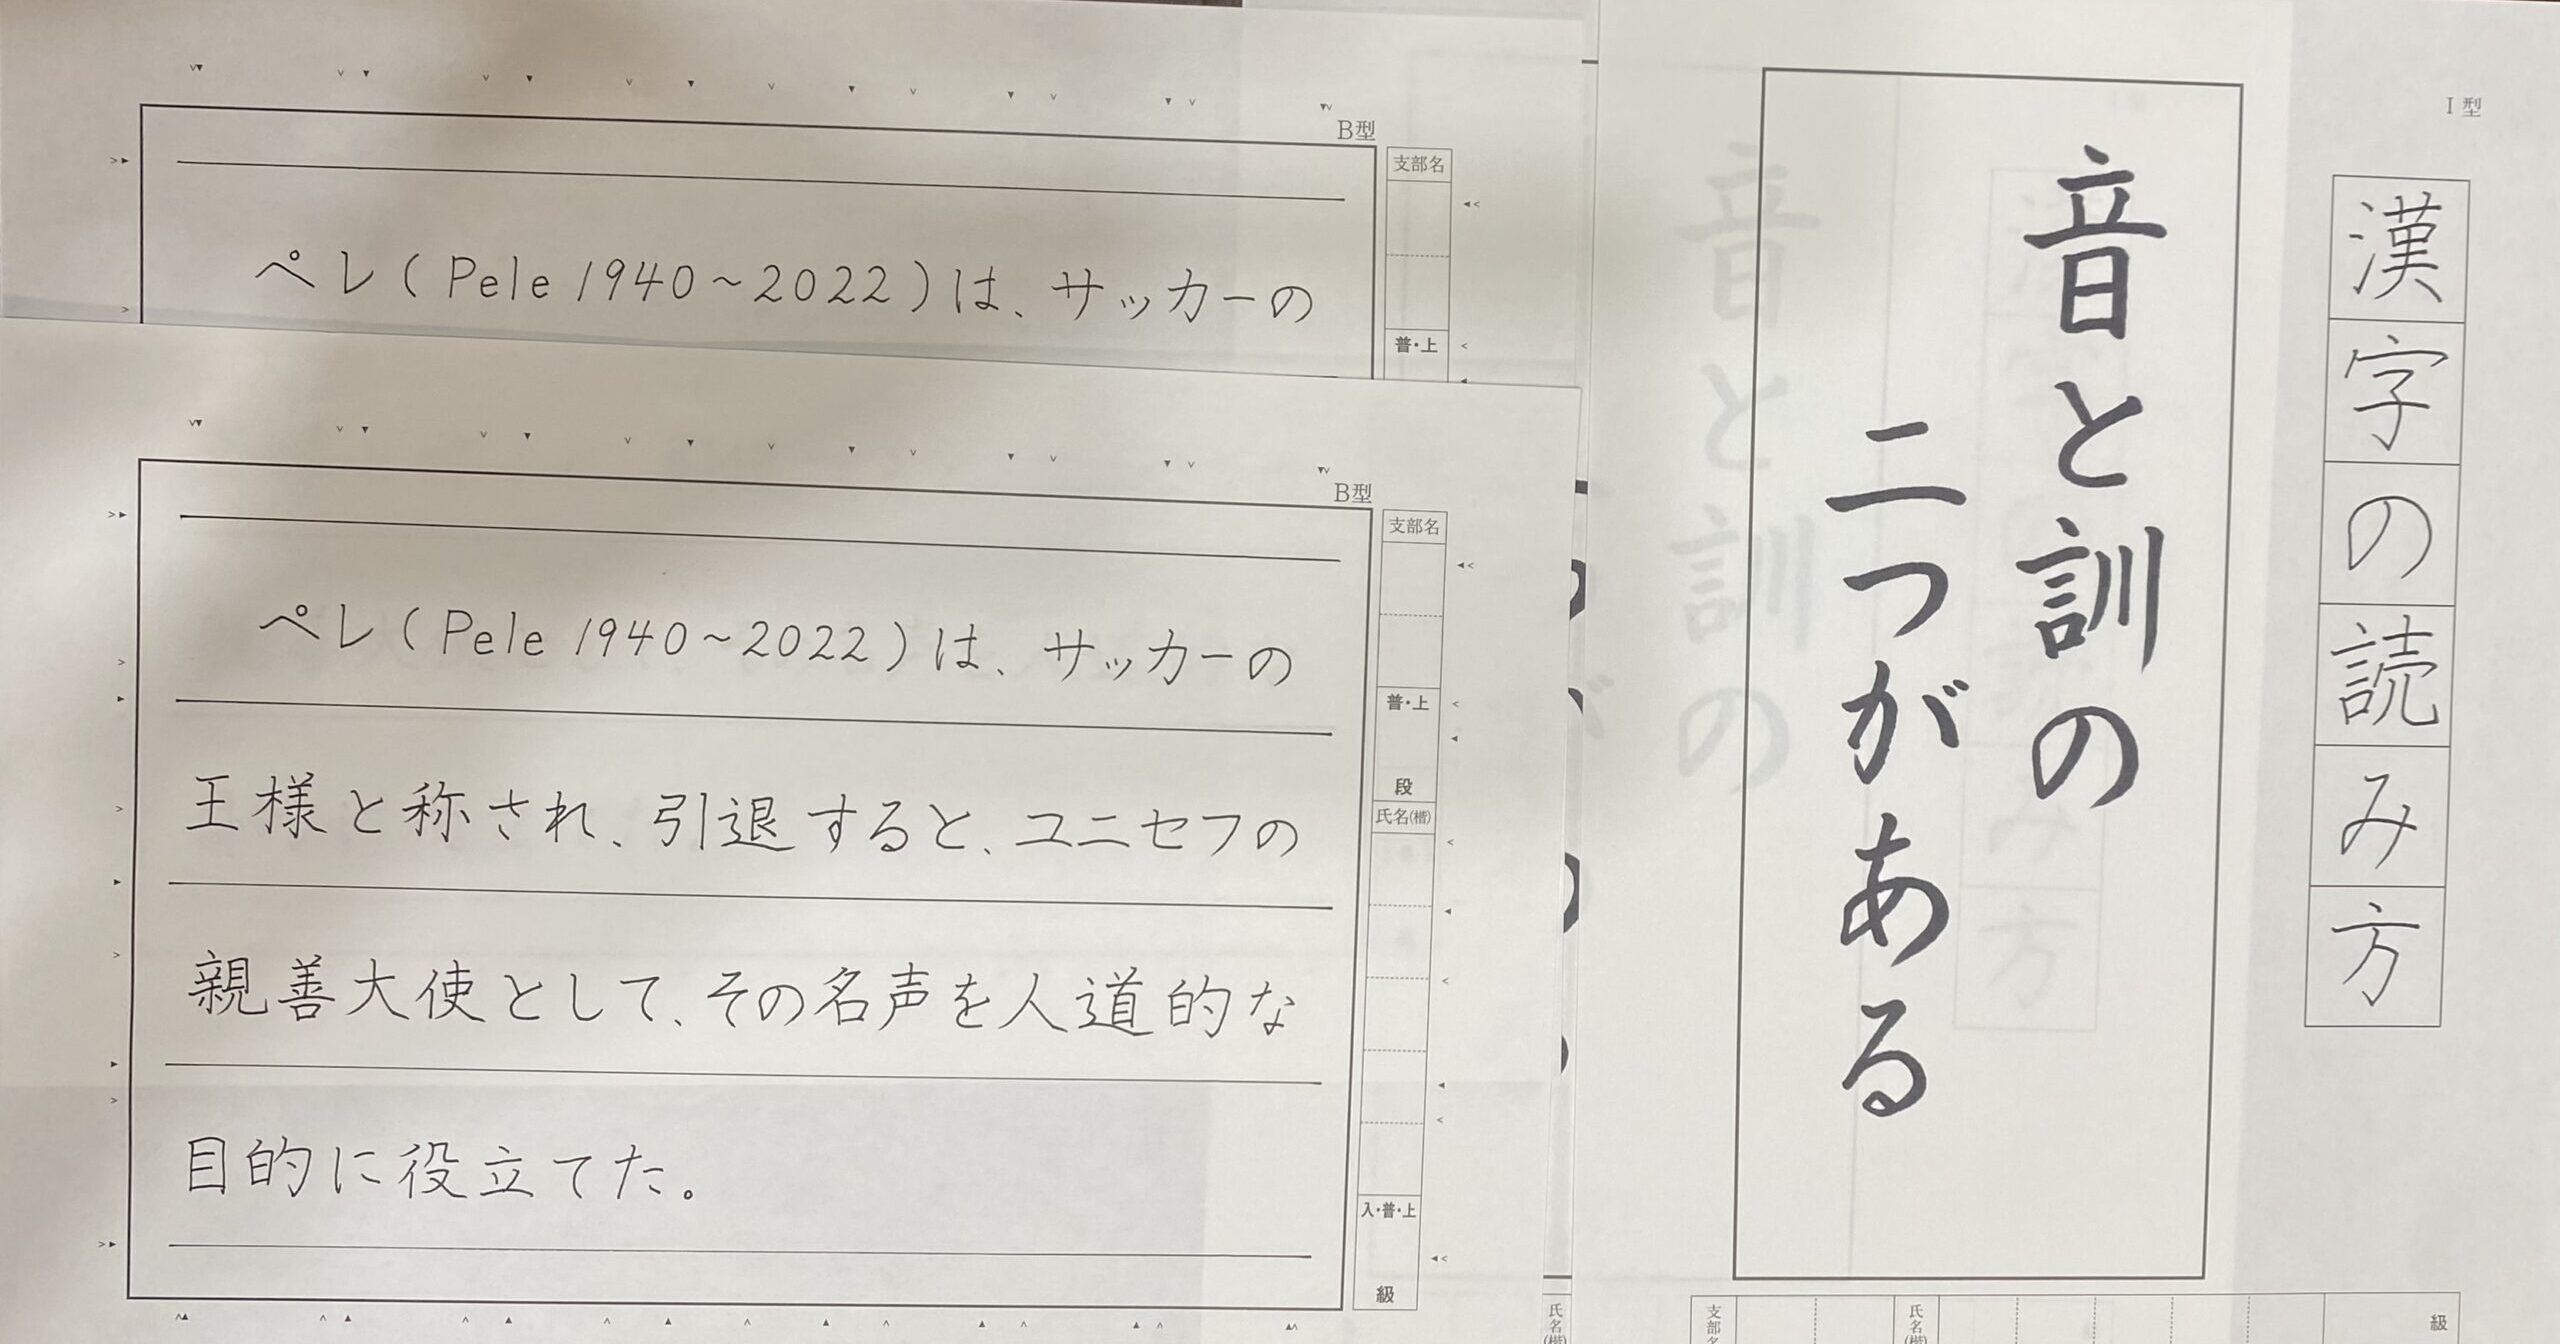 B型
支部名
ペレ(Pele 1940~2022)は、サッカーの
普・上
B型
支部名
ペレ(Pele 1940~2022)は、サッカーの
王様と称され、引退すると、ユニセフの
親善大使として、その名声を人道的な
目的に役立てた。
普・上
段
氏名(楷)
入・普・上
級
I型
漢字の読み方
音と訓の
二つがある
氏名(楷)
支部名
氏名(楷)
級